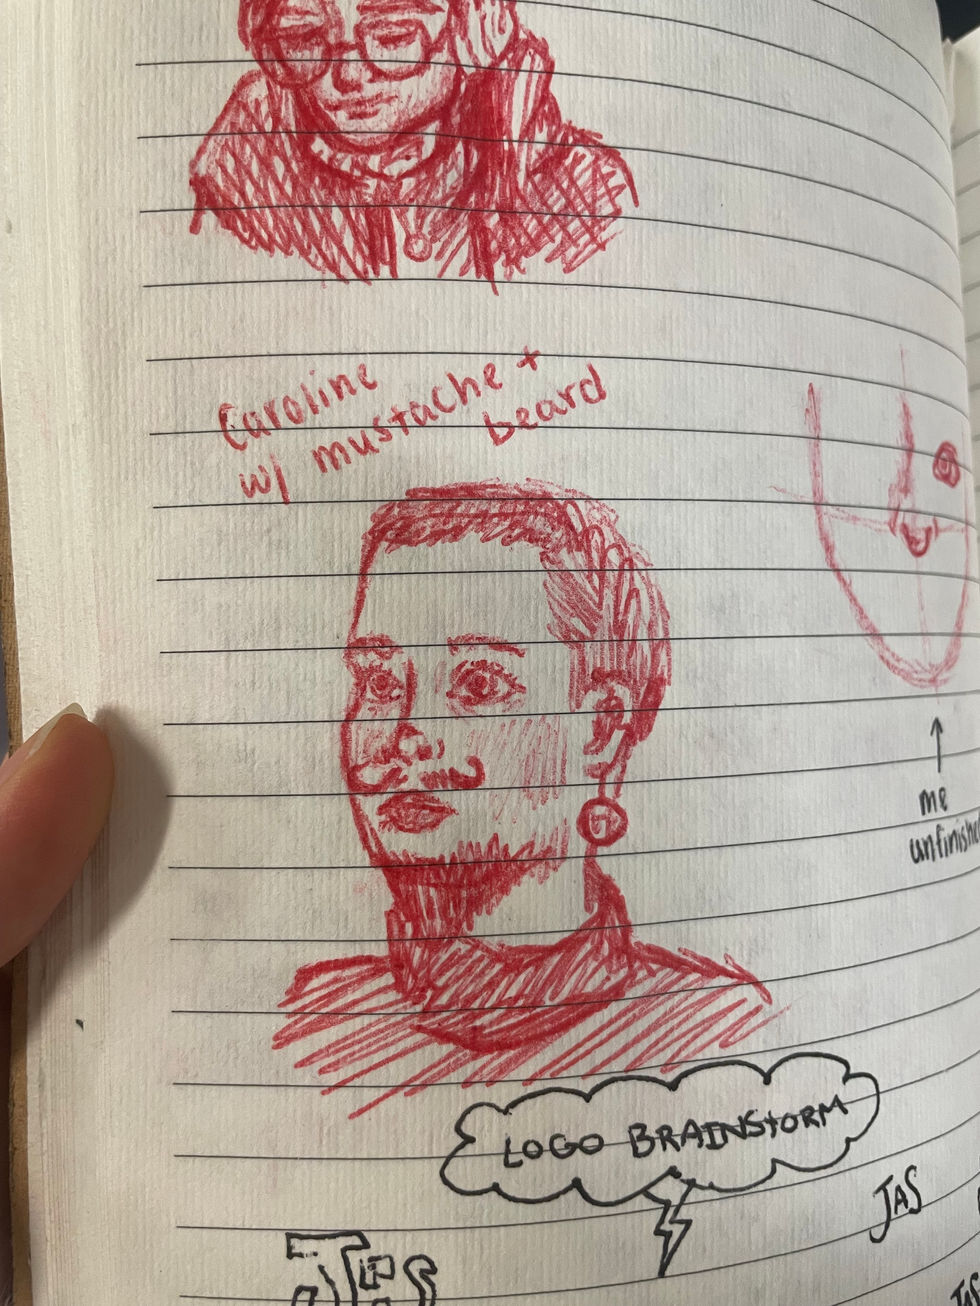 Caroline
w/ mustache +
beard
me
unfinished
LOGO BRAINStORM
JAS